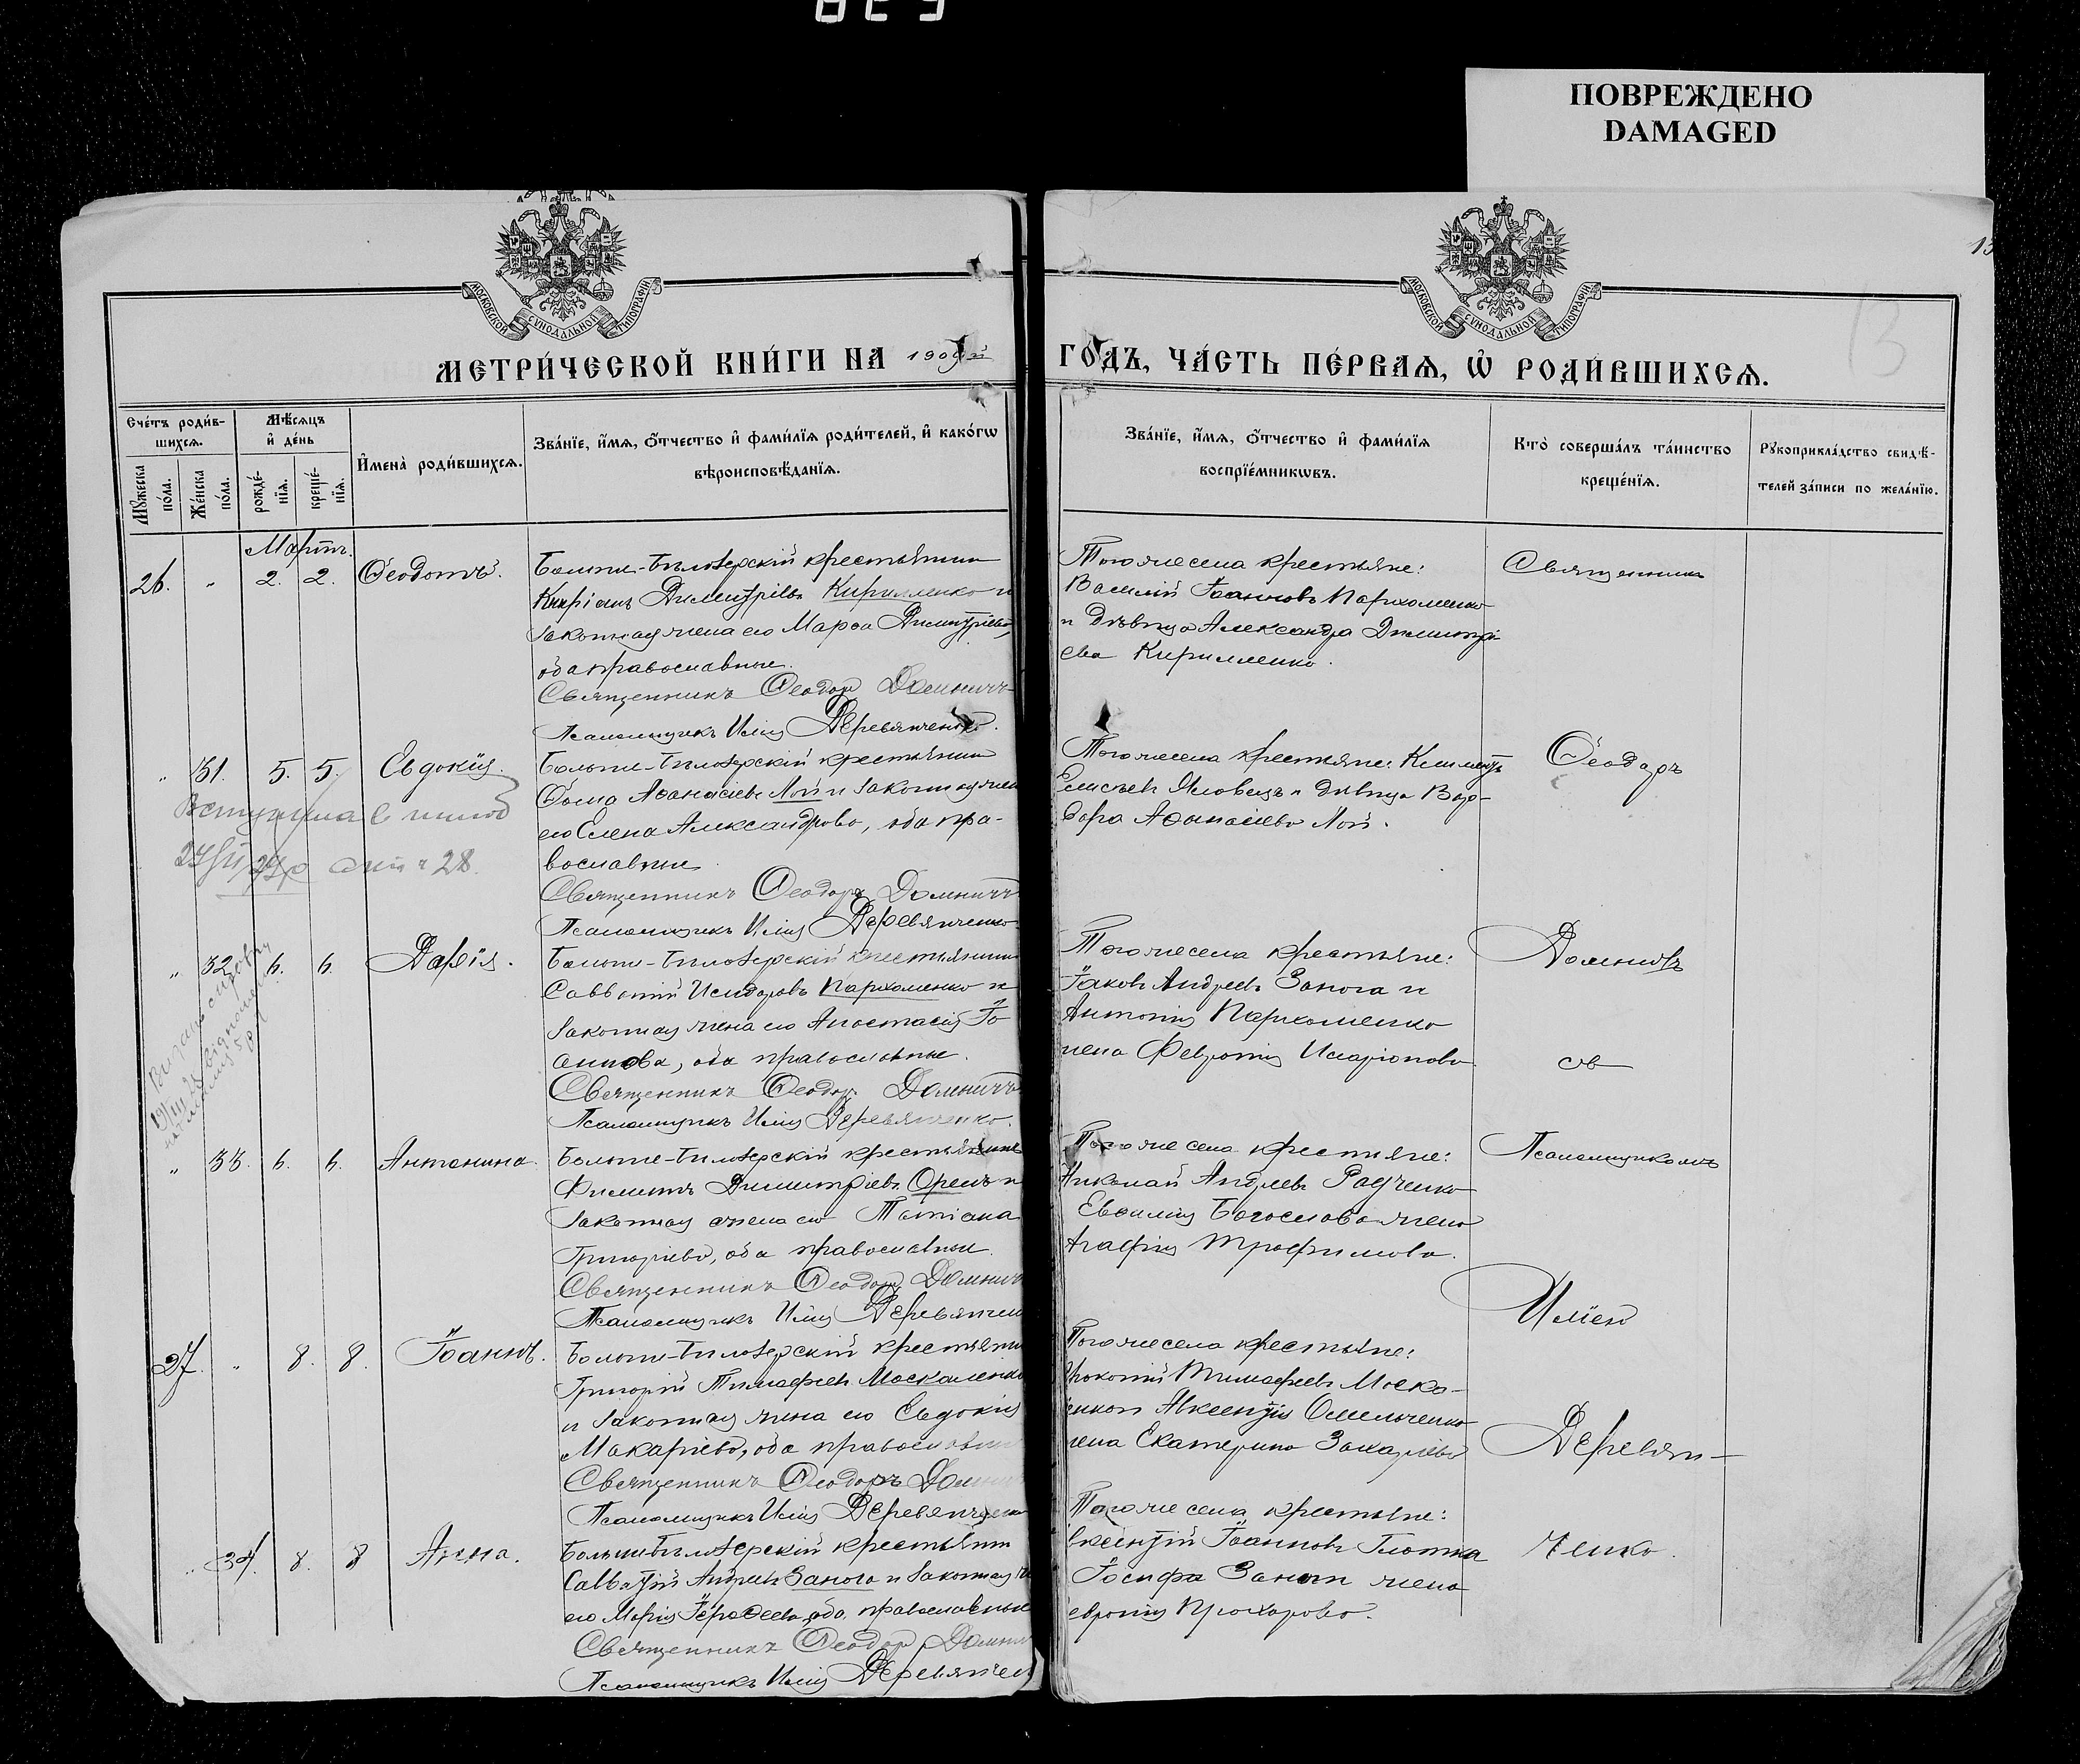 ПОВРЕЖДЕНО
DAMAGED
МОСКОВСКОЙ СѴНОДАЛЬНОЙ ТИПОГРАФІИ
МОСКОВСКОЙ СѴНОДАЛЬНОЙ ТИПОГРАФІИ
13
МЕТРИ́ЧЕСКОЙ КНИ́ГИ НА 1909й ГО́ДЪ, ЧА́СТЬ ПЕ́РВАѦ, Ѡ҆ РОДИ́ВШИХСѦ.
Сче́тъ роди́в-
шихсѧ.
Мꙋ́жеска
по́ла.
Же́нска
по́ла.
Мѣ́сѧцъ
и҆ де́нь
рожде́-
нїѧ.
креще́-
нїѧ.
И҆мена̀ роди́вшихсѧ.
Зва́нїе, и҆́мѧ, ѻ҆́тчество и҆ фами́лїѧ роди́телей, и҆ како́гѡ
вѣроисповѣ́данїѧ.
Зва́нїе, и҆́мѧ, ѻ҆́тчество и҆ фами́лїѧ
воспрїе́мникѡвъ.
Кто̀ соверша́лъ та́инство
креще́нїѧ.
Рꙋкоприкла́дство свидѣ́-
телей за́писи по жела́нїю.
Мартъ.
26. " 2. 2. Ѳеодотъ.
Больше-Бѣлозерскій крестьянин
Кипріанъ Димитріевъ Кирилленко и
законная жена его Марѳа Димитріева,
оба православные.
Священникъ Ѳеодоръ Домничъ
Псаломщикъ Илія Деревянченко.
Тогоже села крестьяне:
Василій Іоанновъ Пархоменко
и дѣвица Александра Димитрі
ева Кирилленко.
Священникъ
" 31. 5. 5. Евдокія.
Вступила в шлюб
Больше-Бѣлозерскій крестьянин
Ѳома Аѳанасіевъ Лой и законная жена
его Елена Александрова, оба пра-
вославные
Священникъ Ѳеодоръ Домничъ
Псаломщикъ Илія Деревянченко
Тогоже села крестьяне: Климентъ
Елисѣевъ Яловецъ и дѣвица Вар-
вара Аѳанасіева Лой.
Ѳеодоръ
" 32. 6. 6. Дарія.
Больше-Бѣлозерскій крестьянин
Савватій Исидоровъ Пархоменко и
законная жена его Анастасія Іо
аннова, оба православные.
Священникъ Ѳеодоръ Домничъ
Псаломщикъ Илія Деревянченко.
Тогоже села крестьяне:
Іаковъ Андреевъ Занога и
Антонія Пархоменко
жена Февронія Иларіонова
Домничъ
съ
" 33. 6. 6. Антонина.
Больше-Бѣлозерскій крестьянин
Филиппъ Димитріевъ Орелъ и
законная жена его Татіана
Григоріева, оба православные
Священникъ Ѳеодоръ Домничъ
Псаломщикъ Илія Деревянчен
Тогоже села крестьяне:
Николай Андреевъ Радченко
Евѳимія Богослова жена
Агафія Трофимова.
Псаломщикомъ
Иліею
27. " 8. 8. Іоаннъ.
Больше-Бѣлозерскій крестьянин
Григорій Тимофеевъ Москаленко
и законная жена его Евдокія
Макаріева, оба православные
Священникъ Ѳеодоръ Домнич
Псаломщикъ Илія Деревянченко
Тогоже села крестьяне:
Прокопій Тимофеевъ Моска-
ленко и Авксентія Омельченко
жена Екатерина Захаріева
Деревян-
" 34. 8. 8 Анна.
Больше Бѣлозерскій крестьянин
Савватій Андреевъ Занога и законная же
его Марія Іероѳеева, оба православные
Священникъ Ѳеодоръ Домнич
Псаломщикъ Илія Деревянчен
Тогоже села крестьяне:
вксентій Іоанновъ Глотка
Іосифа Заноги жена
евронія Прохорова.
ченко.